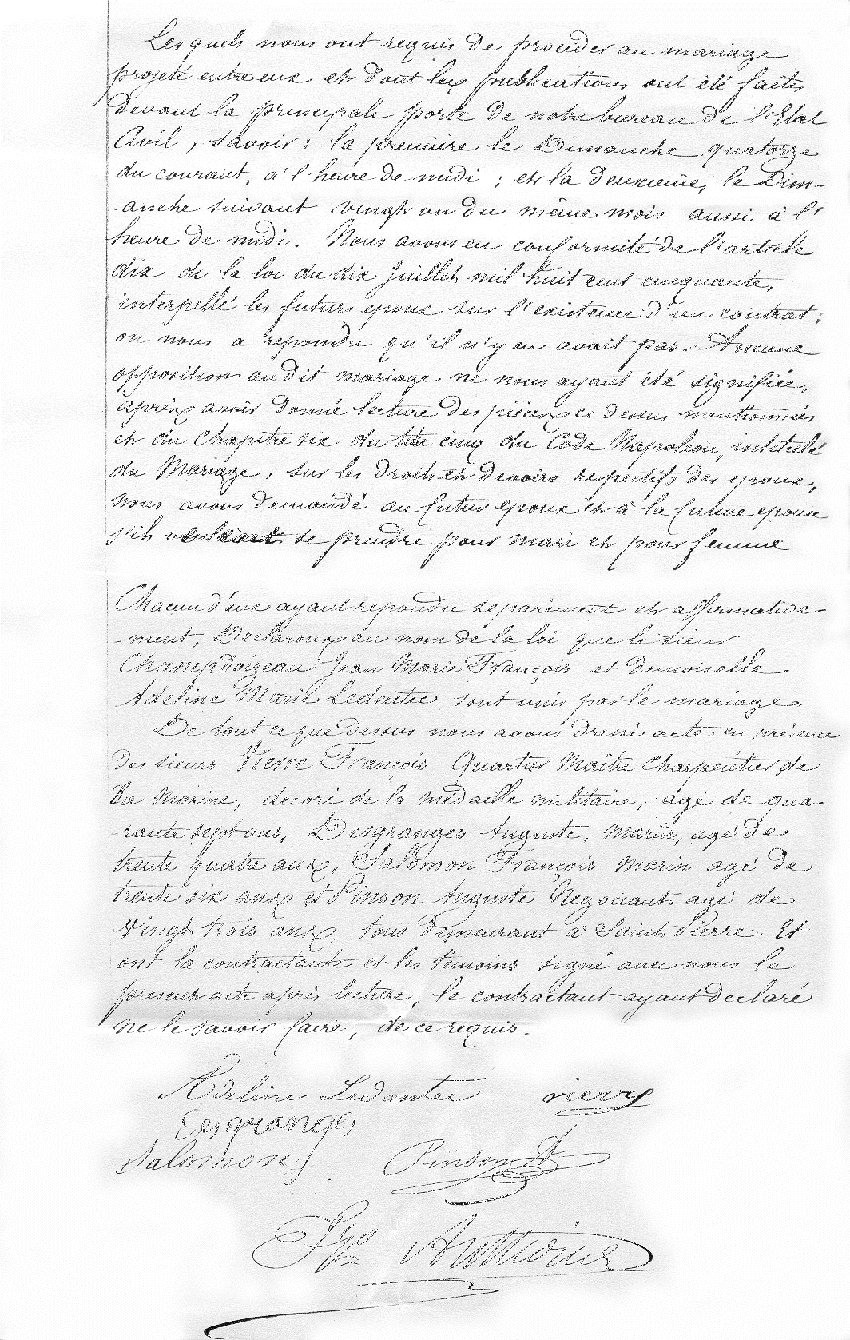 Lesquels nous ont requis de procéder au mariage
projeté entre eux et dont les publications ont été faites
devant la principale porte de notre bureau de l'Etat
Civil, savoir: la première le Dimanche quatorze
du courant, à l'heure de midi; et la deuxième, le Dim-
anche suivant vingt un du même mois aussi à l'
heure de midi. Nous avons en conformité de l'article
dix de la loi du dix Juillet mil huit cent cinquante,
interpellé les futurs epoux sur l'existence d'un contrat:
on nous a répondu qu'il n'y en avait pas. Aucune
opposition au dit mariage ne nous ayant été signifiée,
après avoir donné lecture des pièces ci dessus mentionnées
et du chapitre six du titre cinq du Code Napoléon, intitulé
du Mariage, sur les droits et devoirs respectifs des epoux,
nous avons demandé au futur epoux et à la future epouse
s'ils veulent se prendre pour mari et pour femme
Chacun d'eux ayant repondu séparément et affirmative-
-ment, Déclarons au nom de la loi que le sieur
Champdoizeau Jean Marie François et Demoiselle
Adeline Marie Ledentu sont unis par le mariage
De tout ce que dessus nous avons dressé acte en présence
des sieurs Pierre François Quartier Maître Charpentier de
la Marine, décoré de la médaille militaire, âgé de qua-
-rante sept ans, Desgranges Auguste, marin, agé de
trente quatre ans, Salomon François Marin agé de
trente six ans et Pinson Auguste Négociant agé de
vingt trois ans tous demeurant à Saint Pierre. Et
ont la contractante et les témoins signé avec nous le
présent acte après lecture, le contractant ayant déclaré
ne le savoir faire, de ce requis.
Adeline
Desgranges
Salomon Pinson